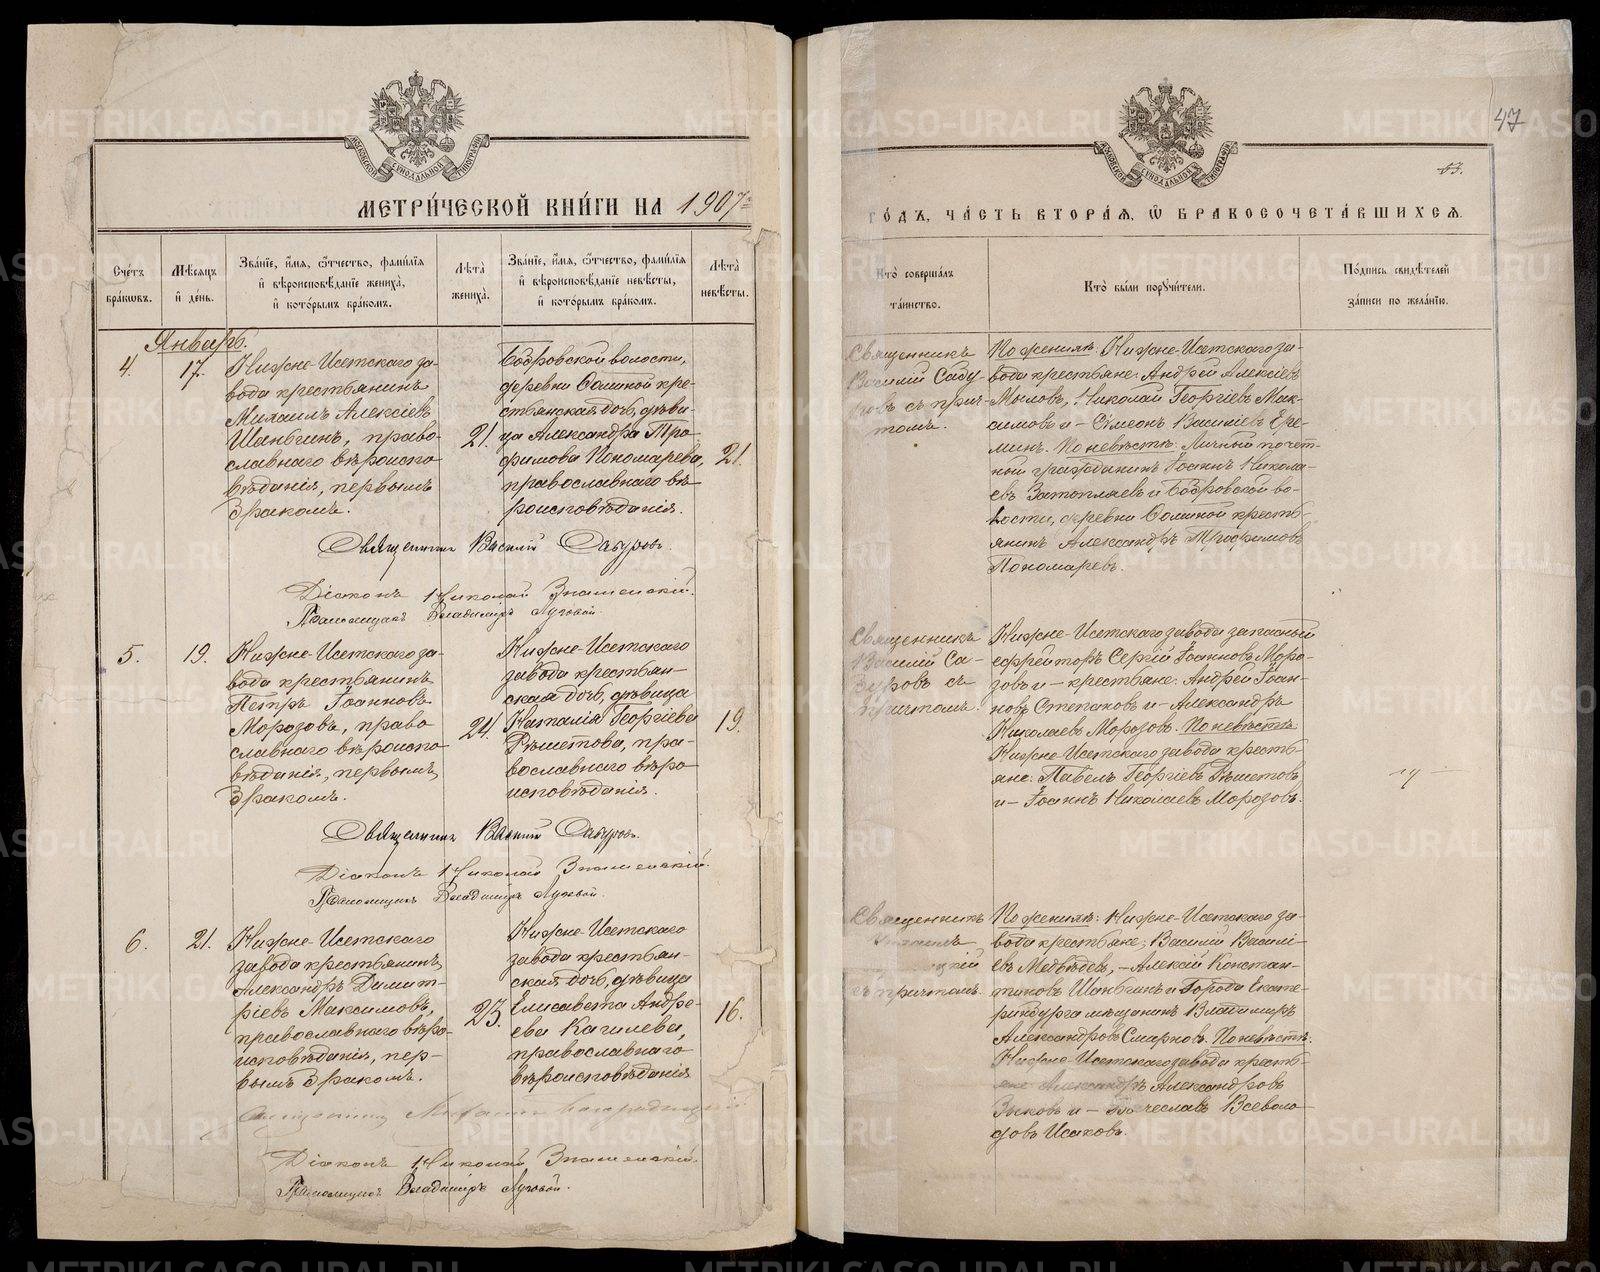 МЕТРИ́ЧЕСКОЙ КНИ́ГИ НА 1907
Сче́тъ бра́ковъ.
Мѣ́сяцъ и҆ де́нь.
Зва́нїе, и҆́мя, ѻ҆́тчество, фами́лїя и҆ вѣроисповѣ́данїе жениха̀, и҆ кото́рымъ бра́комъ.
Лѣта̀ жениха̀.
Зва́нїе, и҆́мя, ѻ҆́тчество, фами́лїя и҆ вѣроисповѣ́данїе невѣ́сты, и҆ кото́рымъ бра́комъ.
Лѣта̀ невѣ́сты.
Январь.
4.
17.
Нижне-Исетскаго за-
вода крестьянинъ
Михаилъ Алексіевъ
Шаньгинъ, право-
славнаго вѣроиспо-
вѣданія, первымъ
бракомъ.
21.
Бобровской волости,
деревни Фоминой кре-
стьянская дочь, дѣви-
ца Александра Тро-
фимова Пономарева,
православнаго вѣ-
роисповѣданія.
21.
Священникъ Василій Сабуровъ.
Діаконъ Николай Знаменскій.
Псаломщикъ Владиміръ Луговой.
5.
19.
Нижне-Исетскаго за-
вода крестьянинъ
Петръ Іоанновъ
Морозовъ, право-
славнаго вѣроиспо-
вѣданія, первымъ
бракомъ.
24.
Нижне-Исетскаго
завода крестьян-
ская дочь, дѣвица
Наталія Георгіева
Рѣшетова, пра-
вославнаго вѣро-
исповѣданія.
19.
Священникъ Василій Сабуровъ.
Діаконъ Николай Знаменскій.
Псаломщикъ Владиміръ Луговой.
6.
21.
Нижне-Исетскаго
завода крестьянинъ
Александръ Димит-
ріевъ Максимовъ,
православнаго вѣро-
исповѣданія, пер-
вымъ бракомъ.
23.
Нижне-Исетскаго
завода крестьян-
ская дочь, дѣвица
Елисавета Андре-
ева Кагилева,
православнаго
вѣроисповѣданія
16.
Священникъ
Діаконъ Николай Знаменскій.
Псаломщикъ Владиміръ Луговой.
47
ГО́ДЪ, ЧА́СТЬ ВТОРА́Я, Ѽ БРАКОСОЧЕТА́ВШИХСЯ.
Кто̀ соверша́лъ та́инство.
Кто̀ бы́ли порꙋчи́тели.
По́дпись свидѣ́телей за́писи по жела́нїю.
Священникъ
Василій Сабу-
ровъ съ прич-
томъ.
По женихѣ: Нижне-Исетскаго за-
вода крестьяне: Андрей Алексіевъ
Мыловъ, Николай Георгіевъ Мак-
симовъ и - Симеонъ Василіевъ Ере-
минъ. По невѣстѣ: Личный почет-
ный гражданинъ Іоаннъ Никола-
евъ Затопляевъ и Бобровской во-
лости, деревни Фоминой кресть-
янинъ Александръ Трофимовъ
Пономаревъ.
Священникъ
Василій Са-
буровъ съ
причтомъ.
Нижне-Исетскаго завода запасный
ефрейторъ Сергій Іоанновъ Моро-
зовъ и - крестьяне: Андрей Іоан-
новъ Степановъ и - Александръ
Николаевъ Морозовъ. По невѣстѣ
Нижне-Исетскаго завода кресть-
яне: Павелъ Георгіевъ Рѣшетовъ
и - Іоаннъ Николаевъ Морозовъ.
Священникъ
съ причтомъ.
По женихѣ: Нижне-Исетскаго за-
вода крестьяне; Василій Василі-
евъ Медвѣдевъ, - Алексій Констан-
тиновъ Шаньгинъ и города Екате-
ринбурга мѣщанинъ Владиміръ
Александровъ Смирновъ. По невѣстѣ:
Нижне-Исетскаго завода кресть-
яне Александръ Александровъ
Зыковъ и - Вячеславъ Всеволо-
довъ Исаковъ.
METRIKI.GASO-URAL.RU